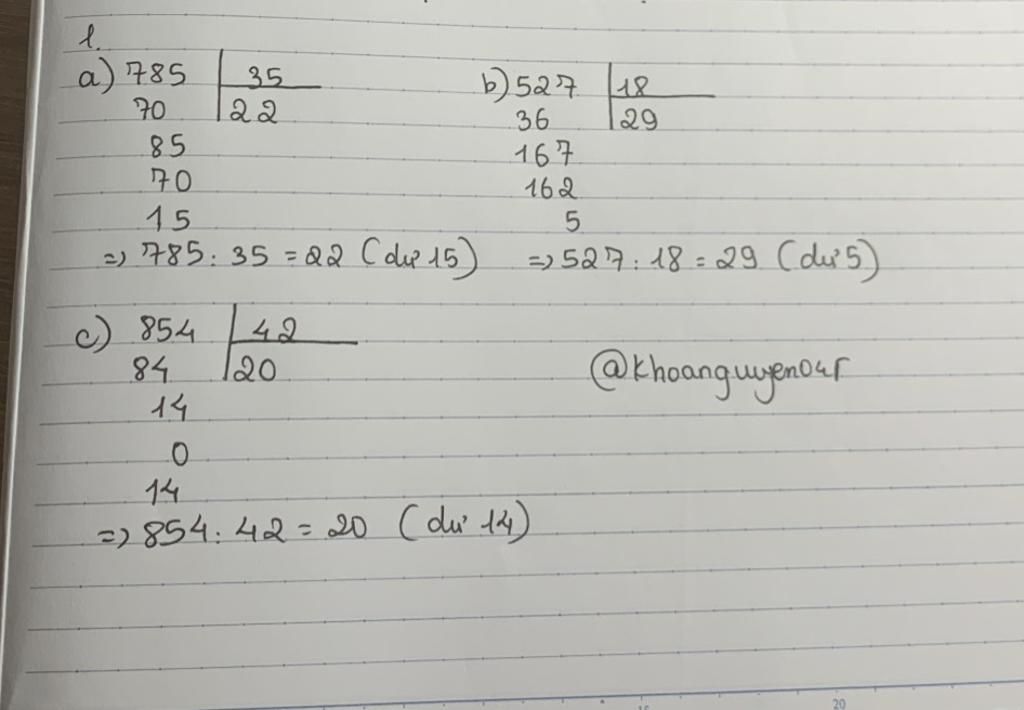 1.
a) 785 35
70 22
85
70
15
=> 785 : 35 = 22 (dư 15)
b) 527 18
36 29
167
162
5
=> 527 : 18 = 29 (dư 5)
c) 854 42
84 20
14
0
14
=> 854 : 42 = 20 (dư 14)
@khoanguyen04r
20